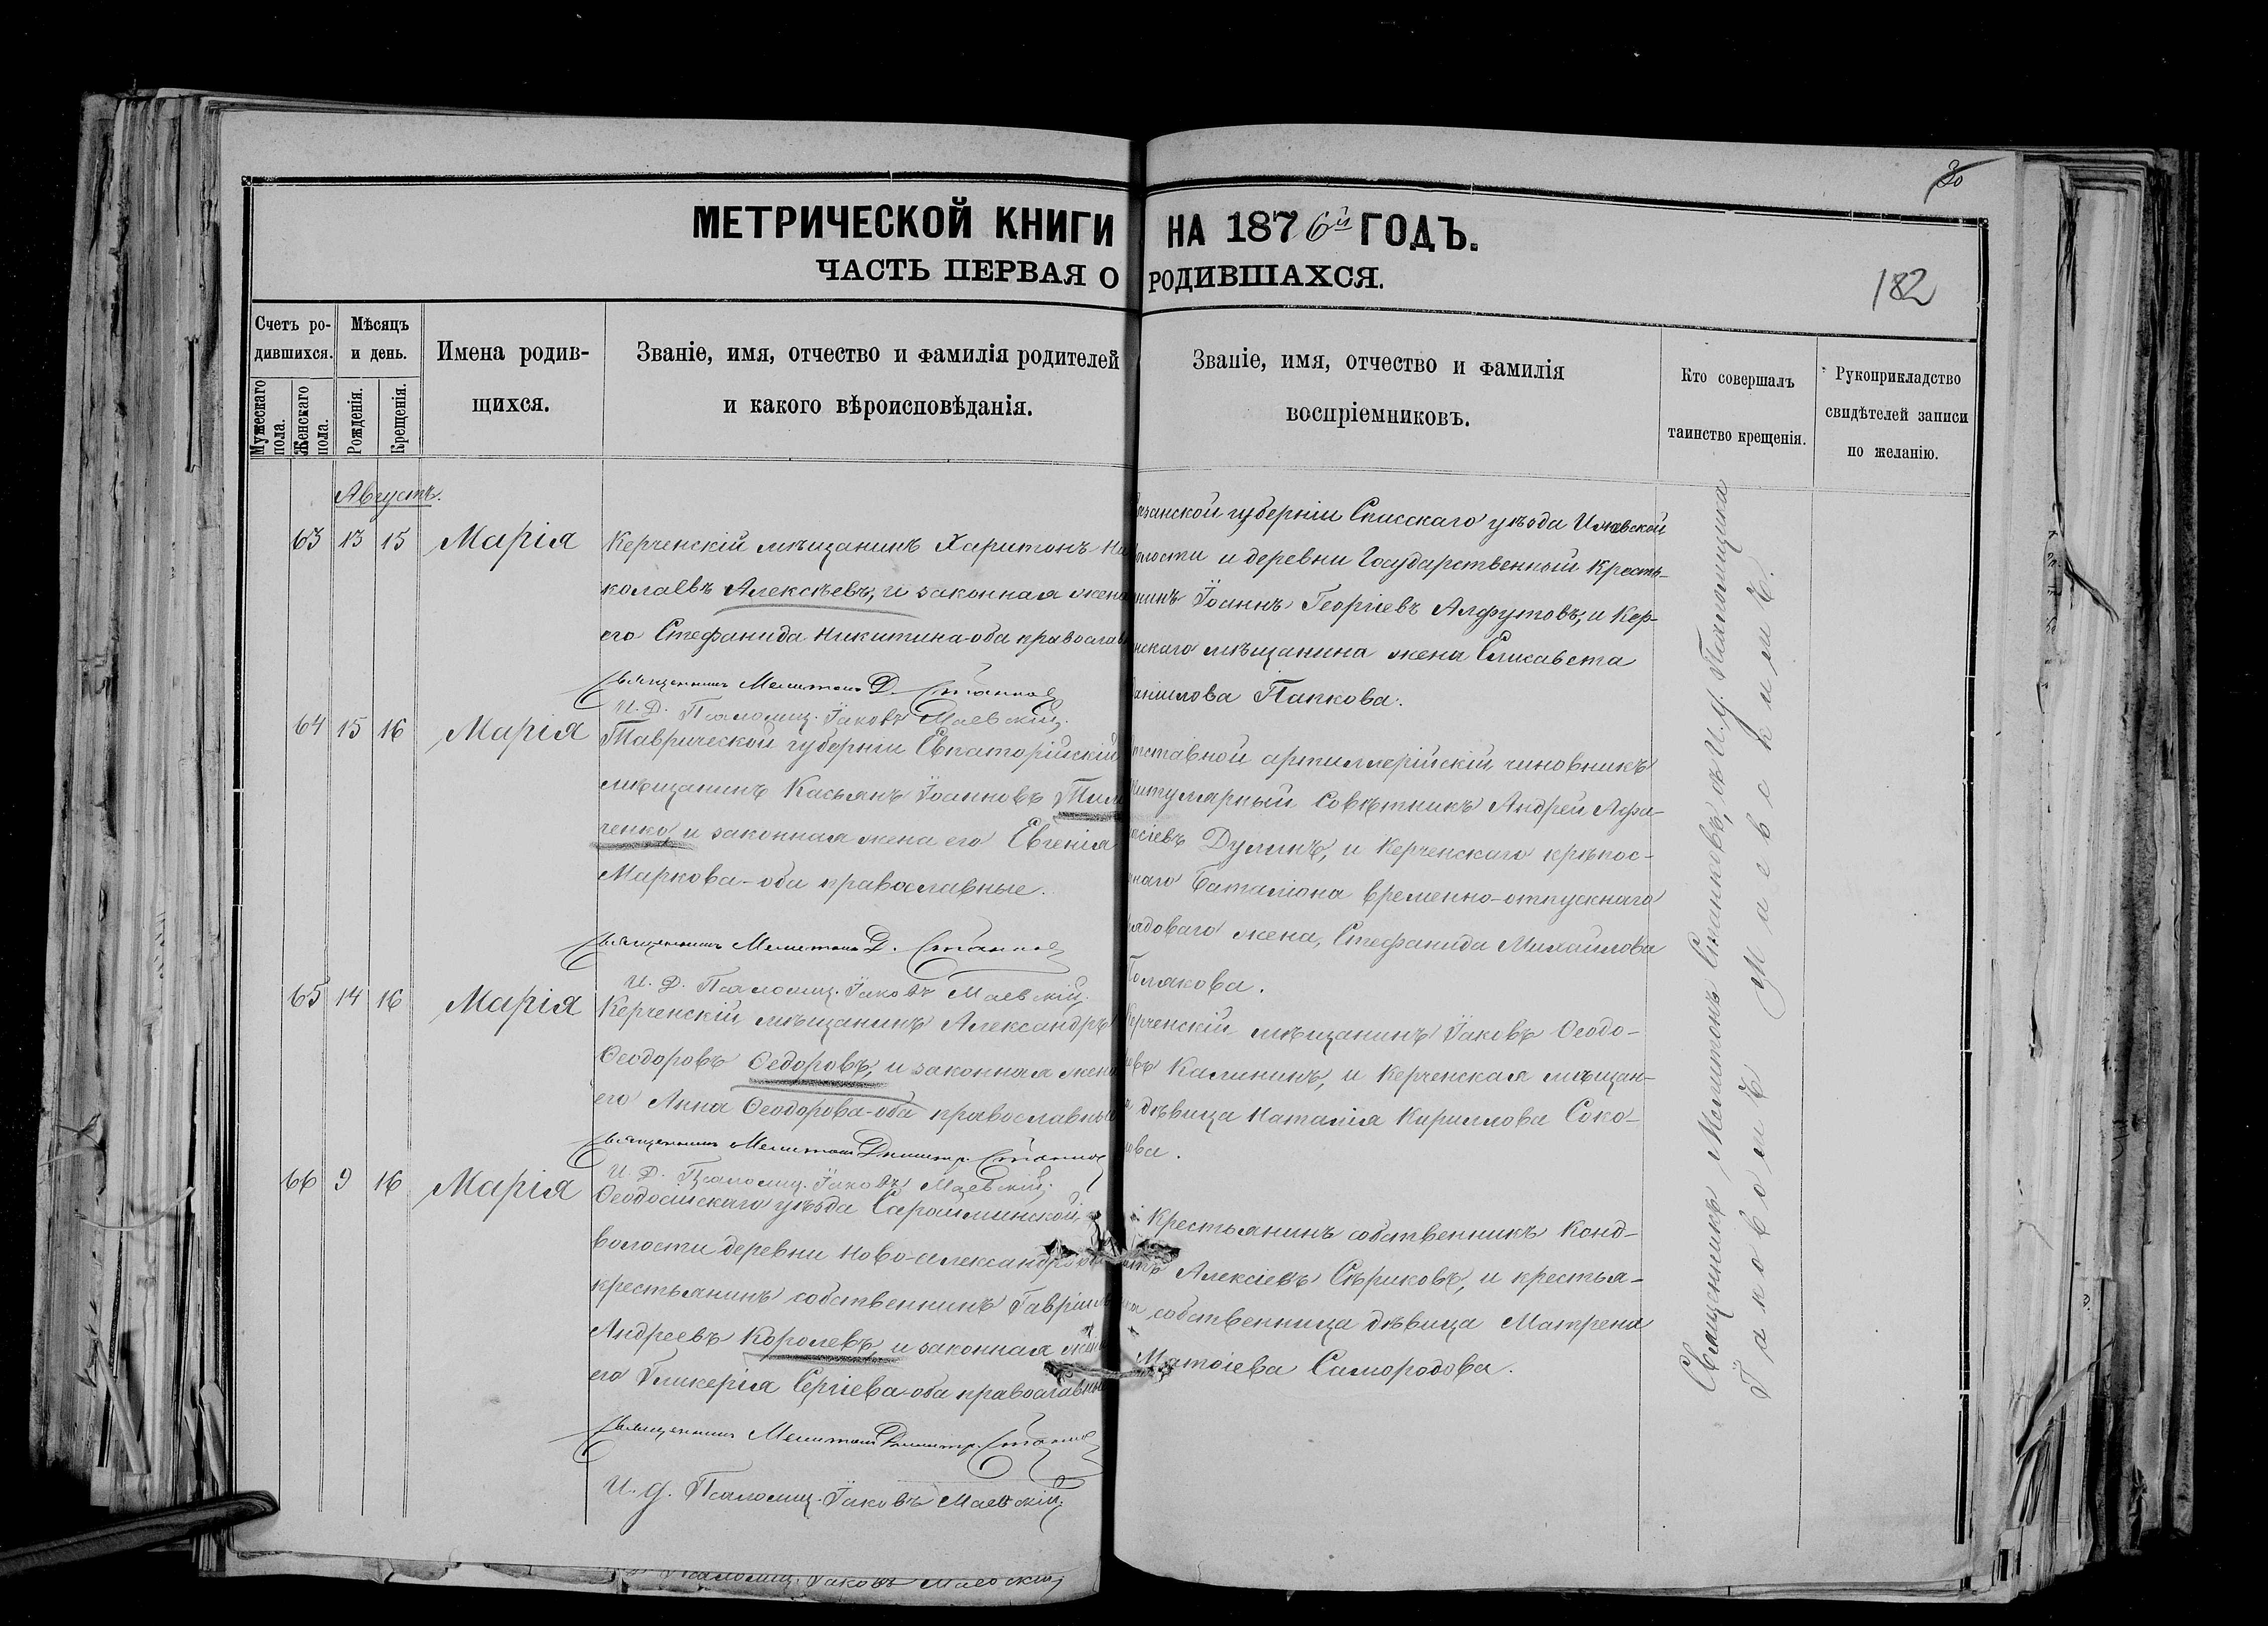 30
МЕТРИЧЕСКОЙ КНИГИ НА 1876й ГОДЪ.
ЧАСТЬ ПЕРВАЯ О РОДИВШАХСЯ.
182
Счетъ ро-
дившихся.
Мужескаго пола.
Женскаго пола.
Мѣсяцъ
и день.
Рожденія.
Крещенія.
Имена родив-
шихся.
Званіе, имя, отчество и фамилія родителей
и какого вѣроисповѣданія.
Званіе, имя, отчество и фамилія
воспріемниковъ.
Кто совершалъ
таинство крещенія.
Рукоприкладство
свидѣтелей записи
по желанію.
Августъ.
63 13 15 Марія
Керченскій мѣщанинъ Харитонъ Ни
колаевъ Алексѣевъ, и законная жена
его Стефанида Никитина-оба православ
Священникъ Мелитонъ Д. Станков
И. Д. Псаломщ. Іаковъ Маевскій.
занской губерніи Спасскаго уѣзда Ижевской
волости и деревни Государственный Кресть-
нинъ Іоаннъ Георгіевъ Алфутовъ, и Кер-
нскаго мѣщанина жена Елисавета
Даніилова Папкова.
64 15 16 Марія
Таврической губерніи Евпаторійскій
мѣщанинъ Касьянъ Іоанновъ Тим
ченко, и законная жена его Евгенія
Маркова-оба православные.
Священникъ Мелитонъ Д. Станков
И. Д. Псаломщ. Іаковъ Маевскій.
тставной артиллерійскій чиновникъ
Титулярный Совѣтникъ Андрей Афа-
сіевъ Дулинъ, и Керченскаго крѣпос-
наго Баталіона временно-отпускнаго
рядоваго жена, Стефанида Михайлова
Полякова.
65 14 16 Марія
Керченскій мѣщанинъ Александръ
Ѳеодоровъ Ѳедоровъ, и законная жена
его Анна Ѳеодорова-оба православны
Священникъ Мелитонъ Димитр. Станков
И. Д. Псаломщ. Іаковъ Маевскій.
Керченскій мѣщанинъ Іаковъ Ѳеодо-
евъ Калининъ, и Керченская мѣщан-
дѣвица Наталія Кириллова Соко-
лова.
66 9 16 Марія
Ѳеодосійскаго уѣзда Сарайминской
волости деревни Ново-александровки
крестьянинъ собственникъ Гавріилъ
Андреевъ Королевъ, и законная жена
его Гликерія Сергіева-оба православны
Священникъ Мелитонъ Димитр. Станков
И. д. Псаломщ. Іаковъ Маевскій.
Крестьянинъ собственникъ Конд-
атъ Алексіевъ Сѣриковъ, и крестья-
собственница дѣвица Матрена
Матѳіева Самородова.
Священникъ Мелитонъ Станковъ, съ И. д. Псаломщика
Іаковомъ Маевскимъ.
Псаломщ. Іаковъ Маевскій